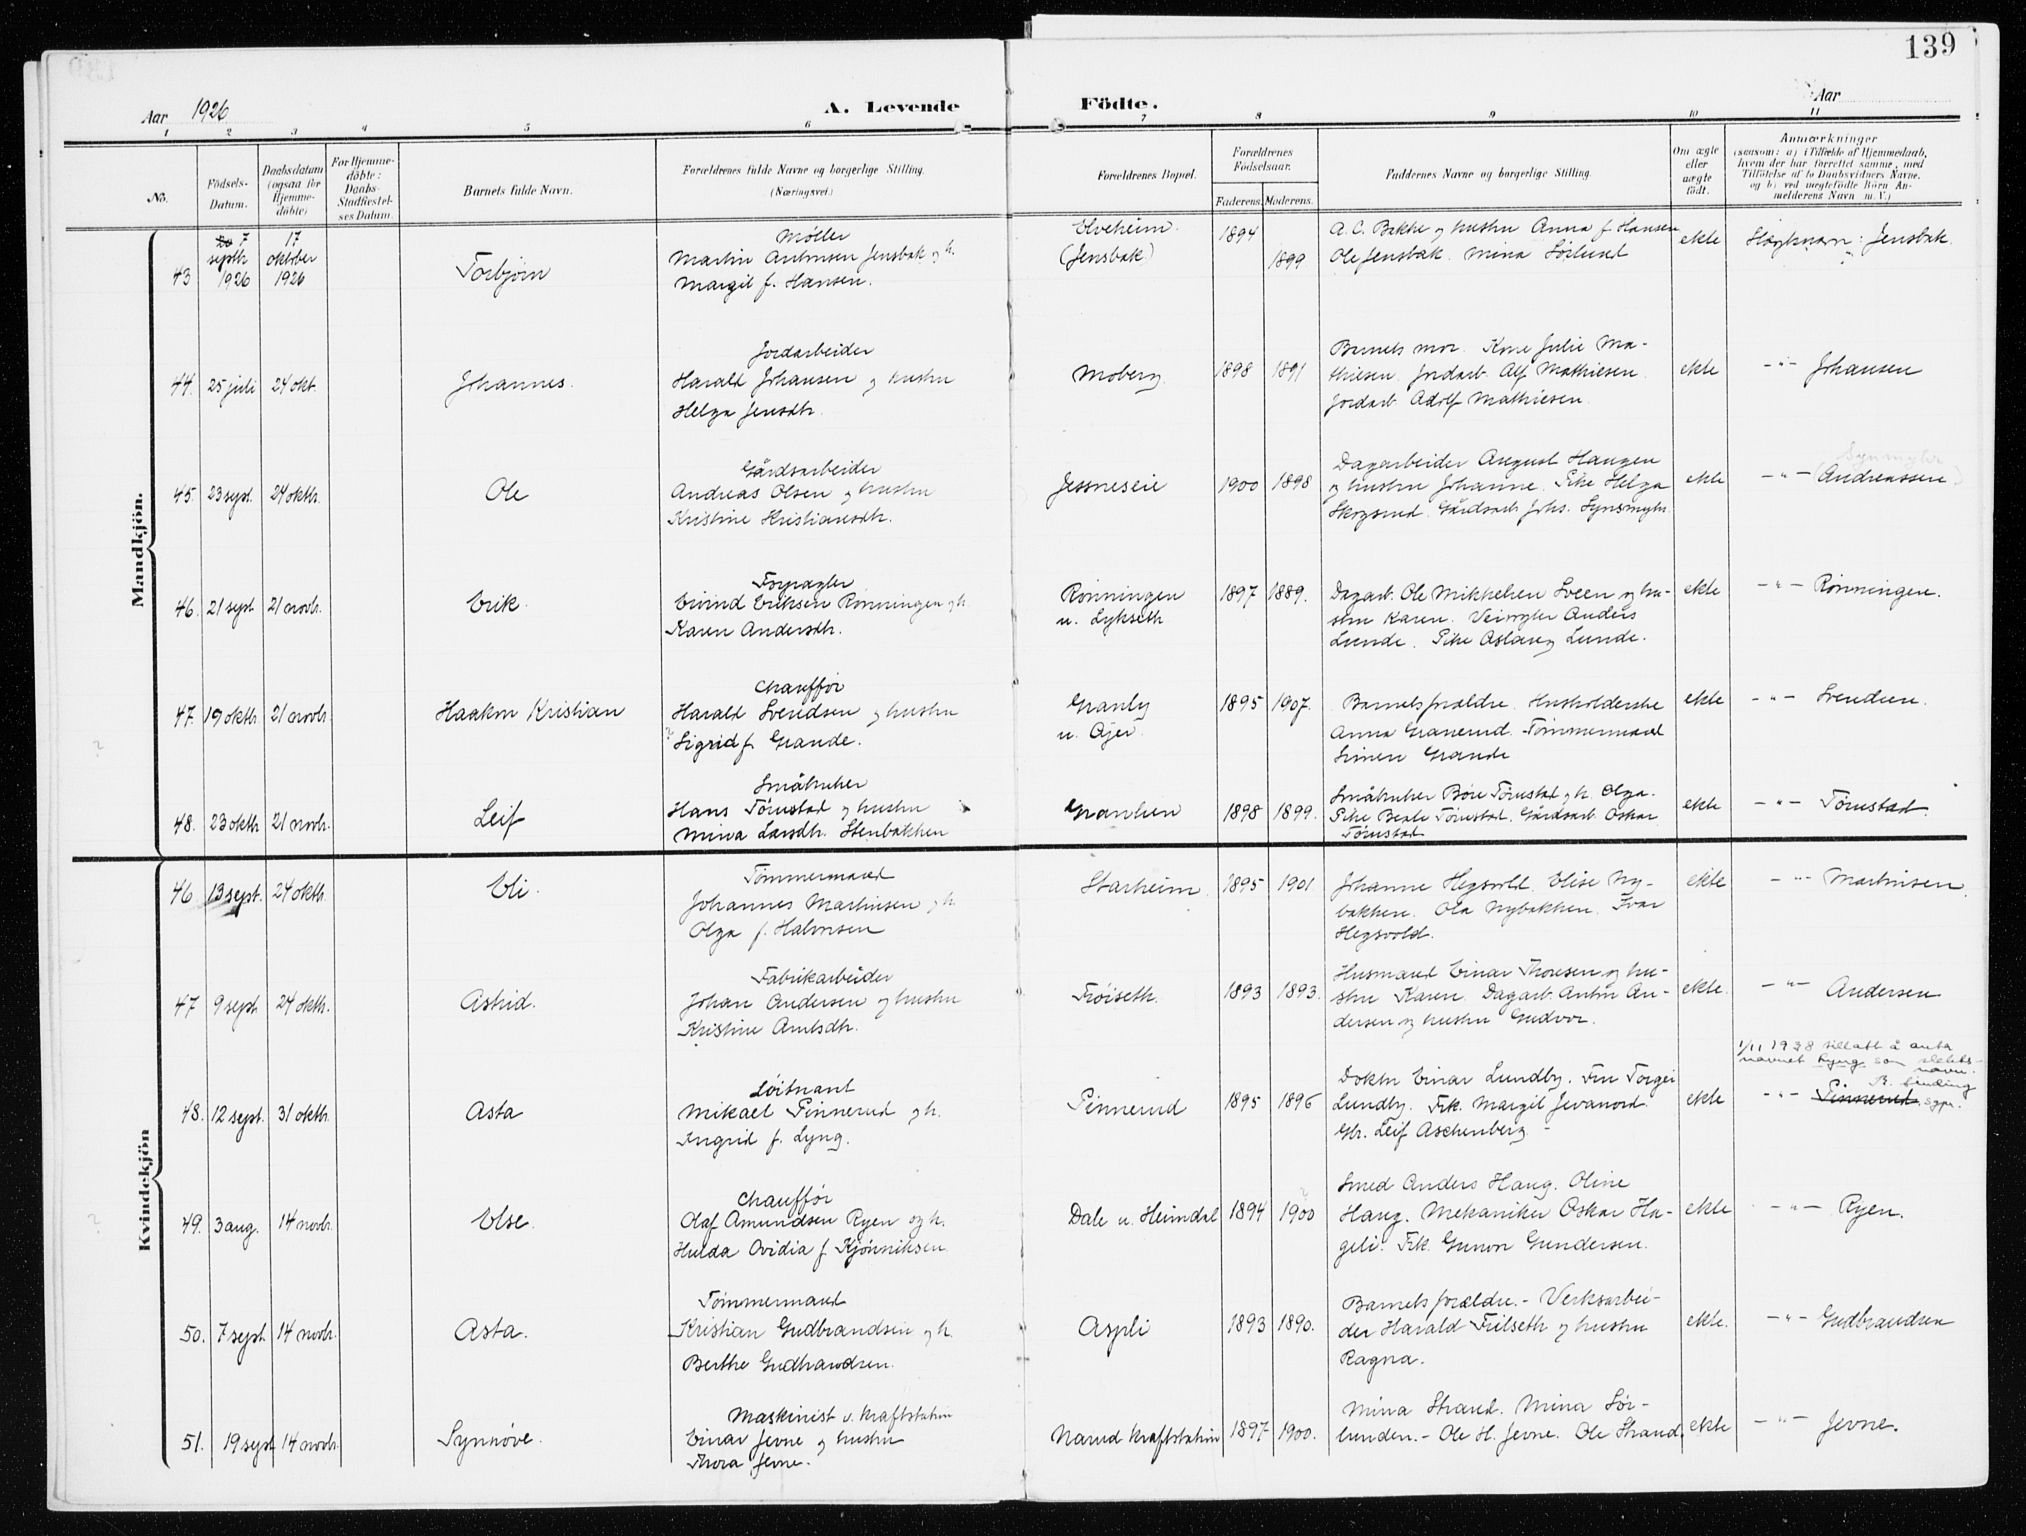 139
Aar 1926 A. Levende Födte. Aar
1 2 3 4 5 6 7 8 9 10 11
No.
Födsels-
Datum.
Daabsdatum
(ogsaa for
Hjemme-
döbte)
For Hjemme-
döbte:
Daabs-
Stadfæstel-
ses Datum.
Barnets fulde Navn.
Forældrenes fulde Navne og borgerlige Stilling.
(Næringsvei.)
Forældrenes Bopæl.
Forældrenes
Fødselsaar.
Faderens. Moderens.
Faddernes Navne og borgerlige Stilling.
Om ægte
eller
uægte
födt.
Anmærkninger
(saasom: a) i Tilfælde af Hjemmedaab,
hvem der har forrettet samme, med
Tilföielse af to Daabsvidners Navne,
og b) ved uægtefödte Börn An-
melderens Navn m. V.)
Mandkjön.
43
7
septbr
1926
17
oktober
1926
Torbjørn
Møller
Martin Antonsen Jensbak og h.
Margit f. Hansen.
Elveheim
(Jensbak)
1894 1899
A. C. Bakke og hustru Anna f. Hansen
Ole Jensbak. Mina Sørlund
ekte
Slegtnavn: Jensbak
44. 25 juli 24 okt.
Johannes.
Jordarbeider
Harald Johansen og hustru
Helga Jensdtr.
Moberg
1898 1891
Barnets mor. Kone Julie Ma-
thiesen. Jordarb. Alf Mathiesen.
Jordarb. Adolf Mathiesen.
ekte
-"- Johansen
45. 23 sept. 24 oktbr.
Ole
Gårdsarbeider
Andreas Olsen og hustru
Kristine Kristiansdtr.
Jessneseie
1900 1898
Dagarbeider August Haugen
og hustru Johanne. Pike Helga
Skogsrud. Gårdsarb. Johs. Synsmyhr.
ekte
-"- (Andreassen)
46. 21 sept 21 novbr.
Erik.
Forpagter
Eivind Eriksen Rønningen og h.
Karen Andersdtr.
Rønningen
u. Lykseth
1897 1889.
Dagarb. Ole Mikkelsen Sveen og hu-
stru Karen. Veivogter Anders
Lunde. Pike Aslaug Lunde.
ekte
-"- Rønningen.
47. 19 oktbr. 21 novbr.
Haakon Kristian
Chauffør
Harald Svendsen og hustru
Sigrid f. Grande.
Granly
u. Ajer.
1895 1907.
Barnets forældre. Husholderske
Anna Granerud. Tømmermand
Simen Grande
ekte
-"- Svendsen.
48. 23 oktbr 21 novbr.
Leif
Småbruker
Hans Tømstad og hustru
Mina Larsdtr. Stenbakken
Granlien
1898 1899.
Småbruker Børe Tømstad og h. Olga.
Pike Beate Tømstad. Gårdsarb. Oskar
Tømstad
ekte
-"- Tømstad.
Kvindekjön
46 13 sept. 24 oktbr.
Eli.
Tømmermand
Johannes Martinsen og h.
Olga f. Halvorsen
Starheim.
1895 1901
Johanne Hegsvold. Elise Ny-
bakken. Ola Nybakken. Ivar
Hegsvold.
ekte
-"- Martinsen
47 9 sept 24 oktbr.
Astrid.
Fabrikarbeider
Johan Andersen og hustru
Kristine Antonsdtr.
Frøiseth.
1893 1893.
Husmand Einar Thoresen og hu-
stru Karen. Dagarb. Anton An-
dersen og hustru Gudvor.
ekte.
-"- Andersen
48. 12 sept. 31 oktbr.
Asta
Løitnant
Mikael Pinnerud og h.
Ingrid f. Lyng.
Pinnerud
1895 1896
Doktor Einar Lundby. Fru Torgei
Lundby. Frk. Margit Jevanord.
Hr. Leif Aschenberg.
ekte
1/11 1938 tillatt å anta
navnet Lyng som slekts-
navn.
-"- Pinnerud. sgpr.
49. 3 aug. 14 novbr.
Else.
Chauffør
Olaf Amundsen Ryen og h.
Hulda Ovidia f. Kjønniksen
Dale u. Heimdal
1894 1900
Smed Anders Haug. Oline
Haug. Mekaniker Oskar Ha-
geli. Frk. Gunvor Gundersen.
ekte
-"- Ryen.
50. 7 sept 14 novbr.
Asta.
Tømmermand
Kristian Gudbrandsen og h.
Berthe Gudbrandsen.
Aspli
1893 1890.
Barnets forældre. - Verksarbei-
der Harald Frilseth og hustru
Ragna.
ekte.
-"- Gudbrandsen
51. 19 sept 14 novbr.
Synnøve.
Maskinist v. kraftstation
Einar Jevne og hustru
Thora Jevne.
Narud kraftstation
1897 1900.
Mina Strand. Mina Sør-
lunden. - Ole H. Jevne. Ole Strand.
ekte
-"- Jevne.